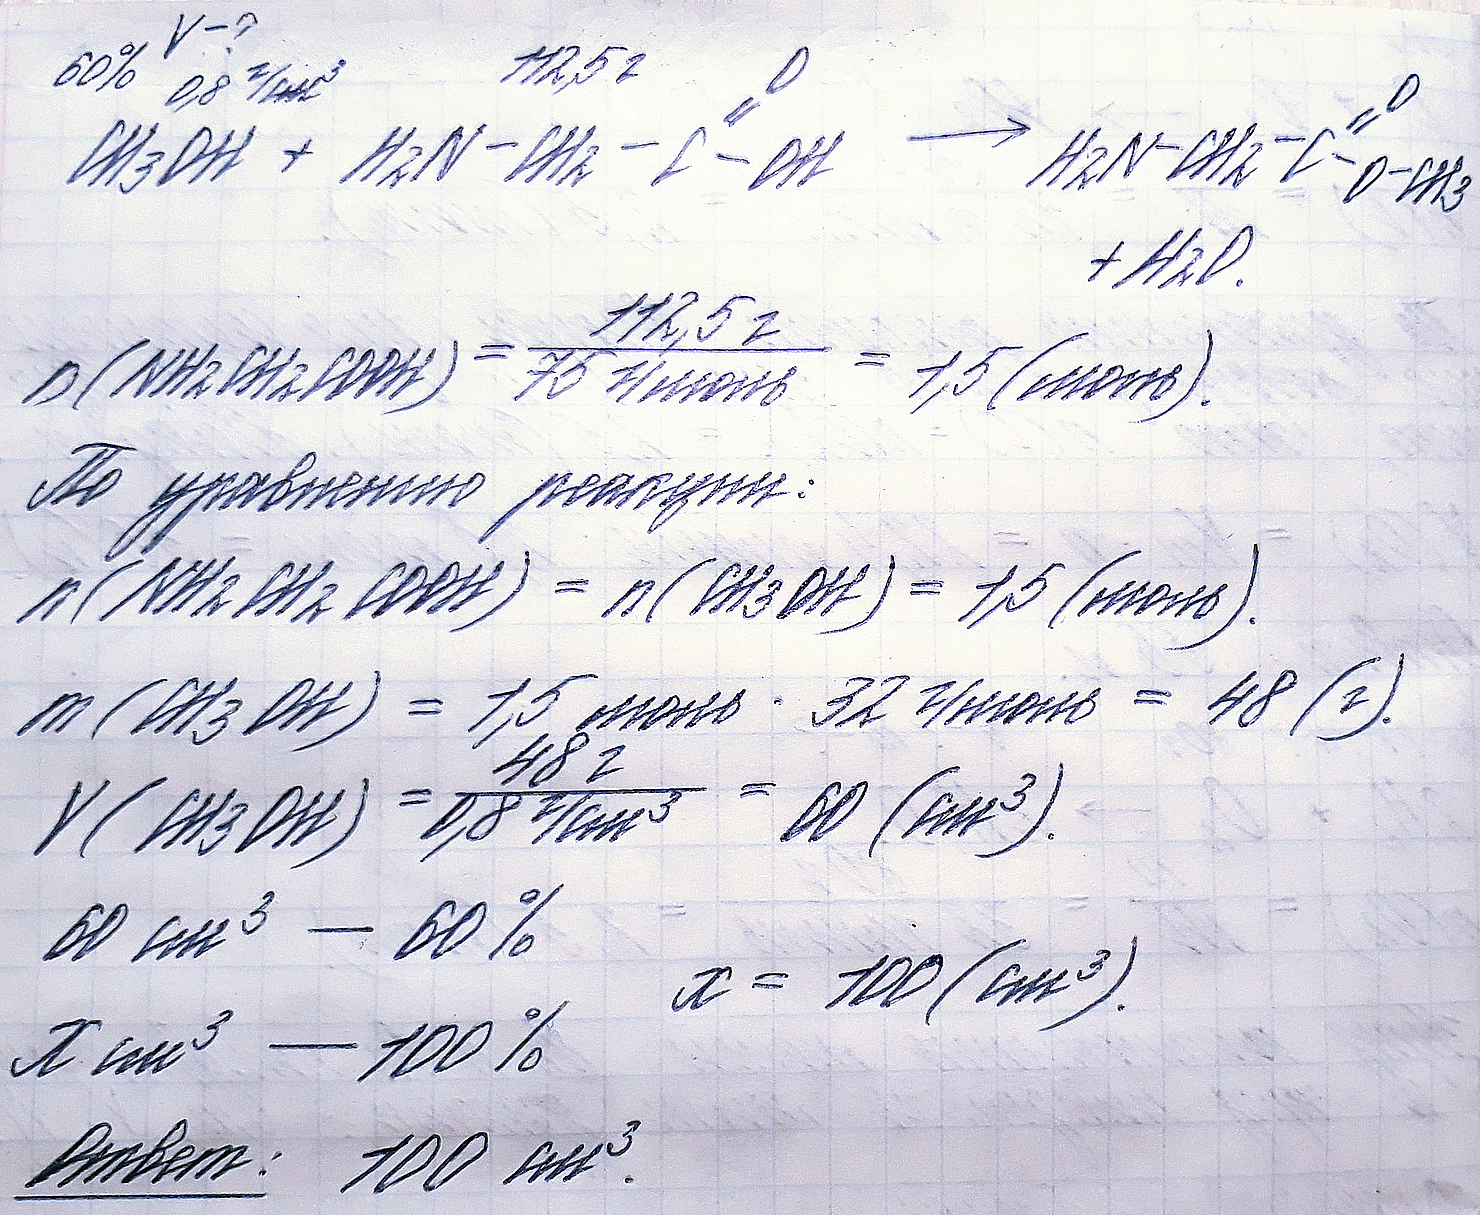 V - ?
60% 0,8 г/см³ 112,5 г
CH3OH + H2N - CH2 - C =O - OH → H2N - CH2 - C =O - O - CH3
+ H2O.
n(NH2CH2COOH) = 112,5 г / 75 г/моль = 1,5 (моль).
По уравнению реакции:
n(NH2CH2COOH) = n(CH3OH) = 1,5 (моль).
m(CH3OH) = 1,5 моль · 32 г/моль = 48 (г).
V(CH3OH) = 48 г / 0,8 г/см³ = 60 (см³).
60 см³ — 60%
x см³ — 100%
x = 100 (см³).
Ответ: 100 см³.